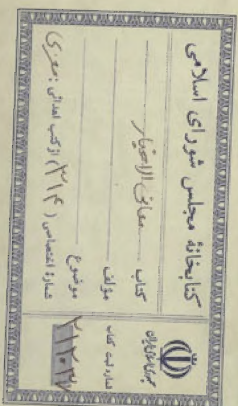 کتابخانهٔ مجلس شورای اسلامی
کتاب معانی الاخبار
مؤلف
موضوع
شمارهٔ اختصاصی (۳۱۴) از کتب اهدائی:
جمهوری اسلامی ایران
شماره ثبت کتاب